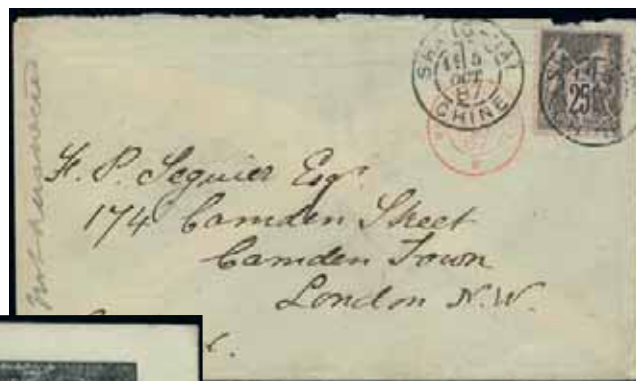 SHANG-HAI
5
OCT
87
CHINE
25
F. P. Seguier Esqr
174 Camden Street
Camden Town
London N.W.